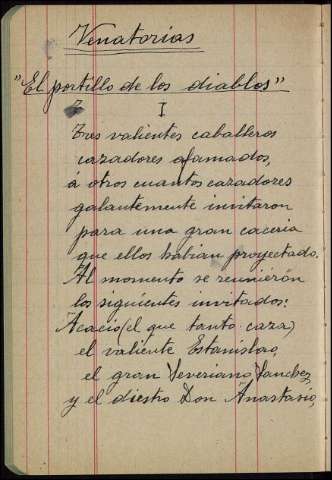 Venatorias
"El portillo de los diablos"
I
Tres valientes caballeros
cazadores afamados,
á otros cuantos cazadores
galantemente invitaron
para una gran caceria
que ellos habian proyectado.
Al momento se reunierón
los siguientes invitados:
Acacio (el que tanto caza)
el valiente Estanislao,
el gran Severiano Sanchez,
y el diestro Don Anastasio,